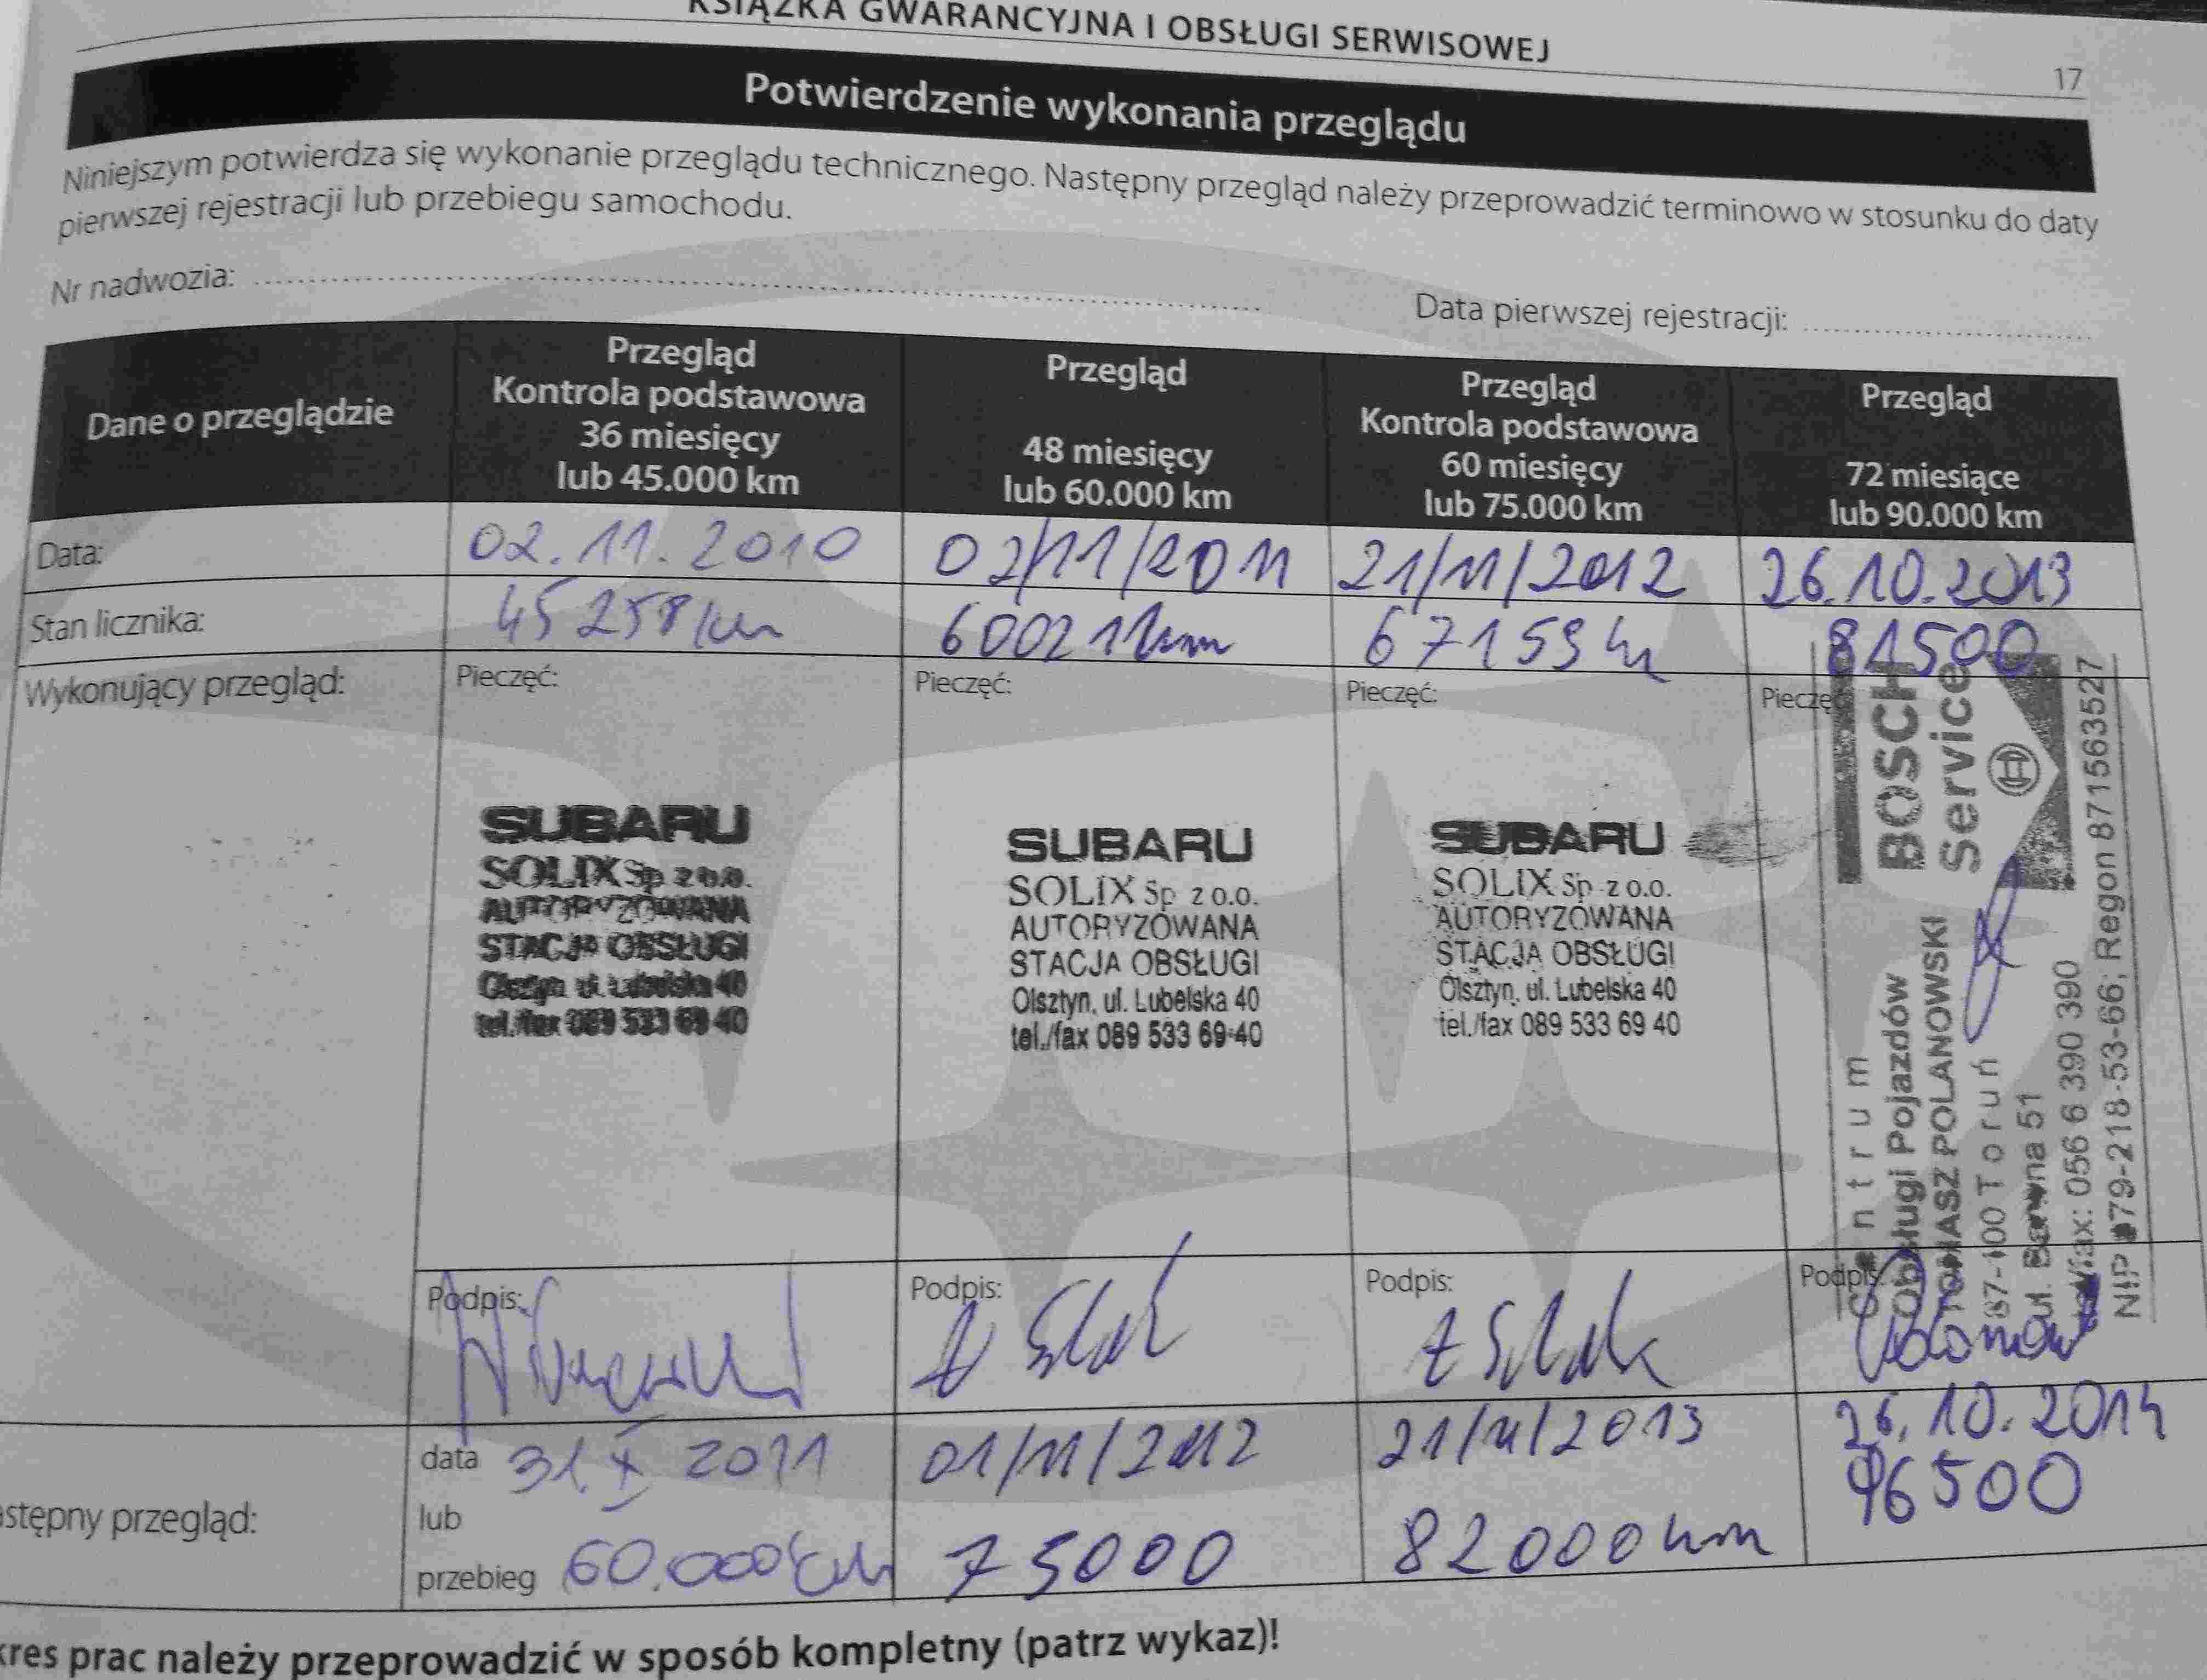 KSIĄŻKA GWARANCYJNA I OBSŁUGI SERWISOWEJ
17
Potwierdzenie wykonania przeglądu
Niniejszym potwierdza się wykonanie przeglądu technicznego. Następny przegląd należy przeprowadzić terminowo w stosunku do daty
pierwszej rejestracji lub przebiegu samochodu.
Nr nadwozia:
Data pierwszej rejestracji:
Dane o przeglądzie
Przegląd
Kontrola podstawowa
36 miesięcy
lub 45.000 km
Przegląd
48 miesięcy
lub 60.000 km
Przegląd
Kontrola podstawowa
60 miesięcy
lub 75.000 km
Przegląd
72 miesiące
lub 90.000 km
Data:
02.11.2010
02/11/2011
21/11/2012
26.10.2013
Stan licznika:
45258 km
60021 km
67159 km
81500
Wykonujący przegląd:
Pieczęć:
SUBARU
SOLIX Sp. z o.o.
AUTORYZOWANA
STACJA OBSŁUGI
Olsztyn, ul. Lubelska 40
tel./fax 089 533 69 40
Pieczęć:
SUBARU
SOLIX Sp. z o.o.
AUTORYZOWANA
STACJA OBSŁUGI
Olsztyn, ul. Lubelska 40
tel./fax 089 533 69 40
Pieczęć:
SUBARU
SOLIX Sp. z o.o.
AUTORYZOWANA
STACJA OBSŁUGI
Olsztyn, ul. Lubelska 40
tel./fax 089 533 69 40
Pieczęć
BOSCH
Service
Centrum
Obsługi Pojazdów
TOMASZ POLANOWSKI
87-100 Toruń
ul. 51
fax: 056 6 390 390
NIP 879-218-53-66; Regon 871563527
Podpis:
Podpis:
Podpis:
Podpis:
astępny przegląd:
data 31.X 2011
lub
przebieg 60.000 km
01/11/2012
75000
21/11/2013
82000 km
26.10.2014
96500
kres prac należy przeprowadzić w sposób kompletny (patrz wykaz)!